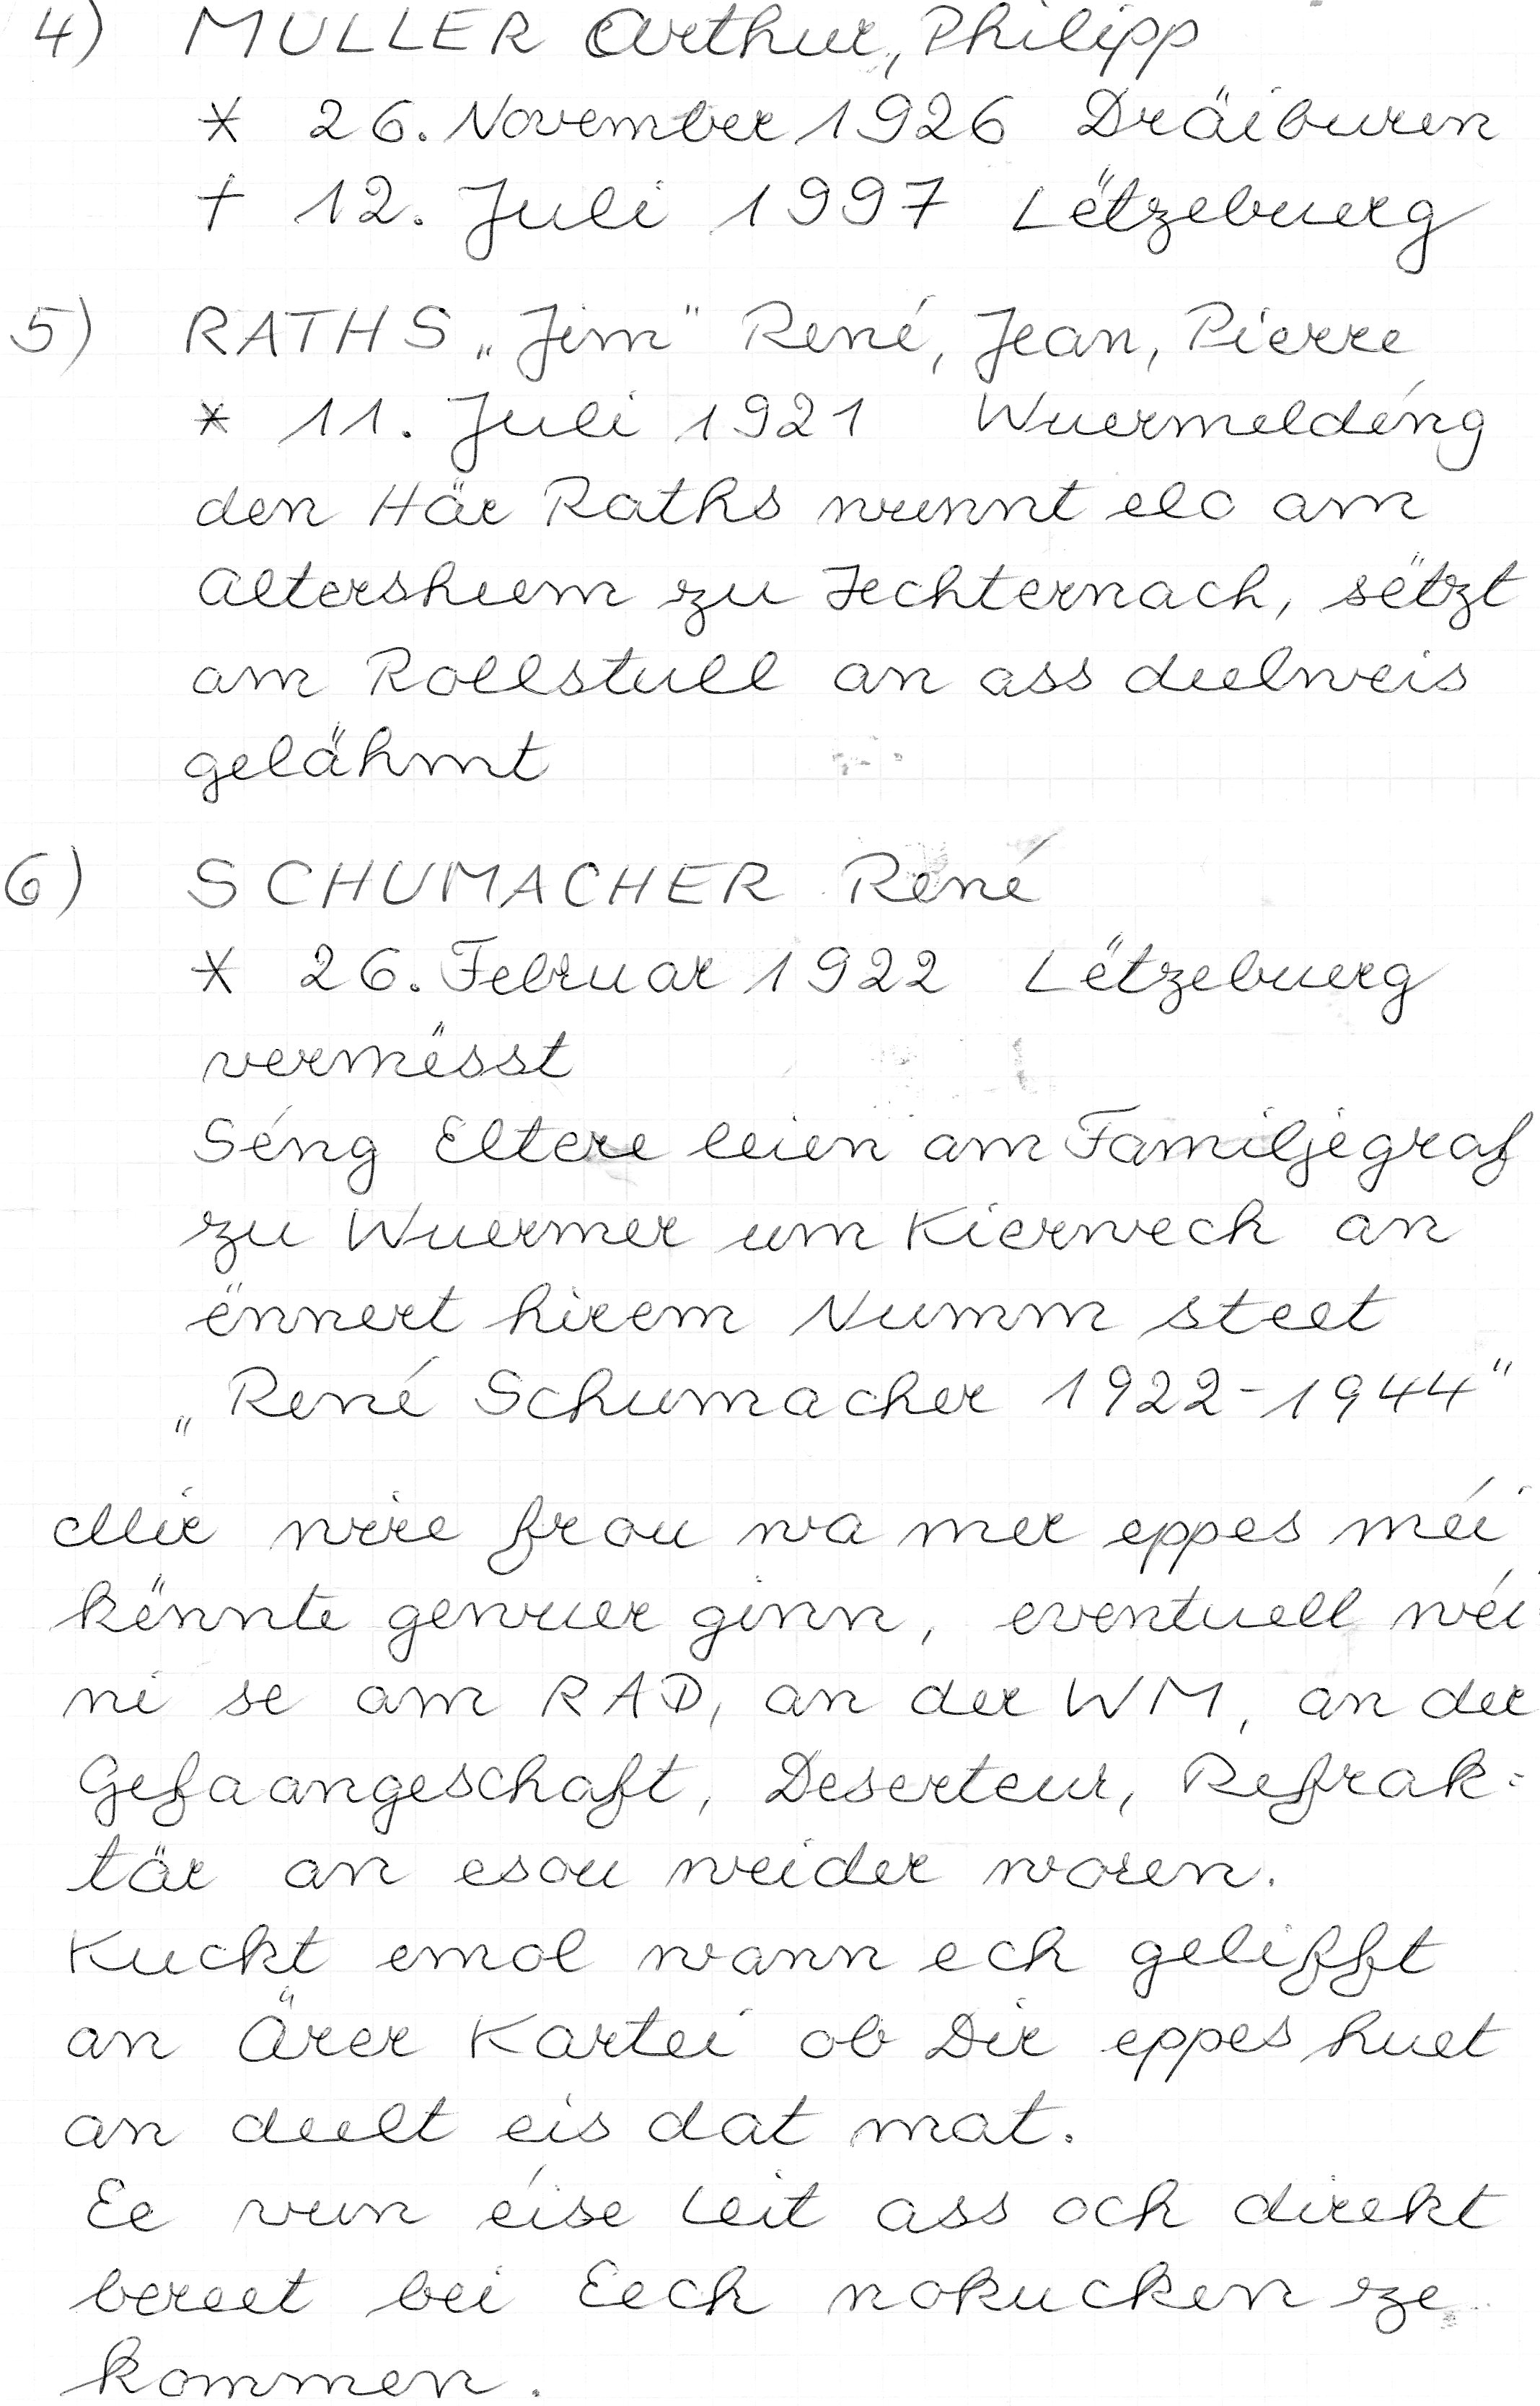 4) MULLER Arthur, Philipp
* 26. November 1926 Dräiburen
† 12. Juli 1997 Lëtzebuerg
5) RATHS „Jim" René, Jean, Pierre
* 11. Juli 1921 Wuermeldéng
den Här Raths wunnt elo am
Altersheem zu Iechternach, sëtzt
am Rollstull an ass deelweis
gelähmt
6) SCHUMACHER René
* 26. Februar 1922 Lëtzebuerg
vermësst
Séng Eltere leien am Familjegraf
zu Wuermer um Kierwech an
ënnert hirem Numm steet
„René Schumacher 1922-1944"
Mir wire frou wa mer eppes méi
kënnte gewuer ginn, eventuell wéi
ni se am RAD, an der WM, an der
Gefaangeschaft, Deserteur, Refrak=
tär an esou weider woren.
Kuckt emol wann ech gelifft
an Ärer Kartei ob Dir eppes huet
an deelt eis dat mat.
Ee vun eíse Leit ass och direkt
bereet bei Eech nokucken ze
kommen.